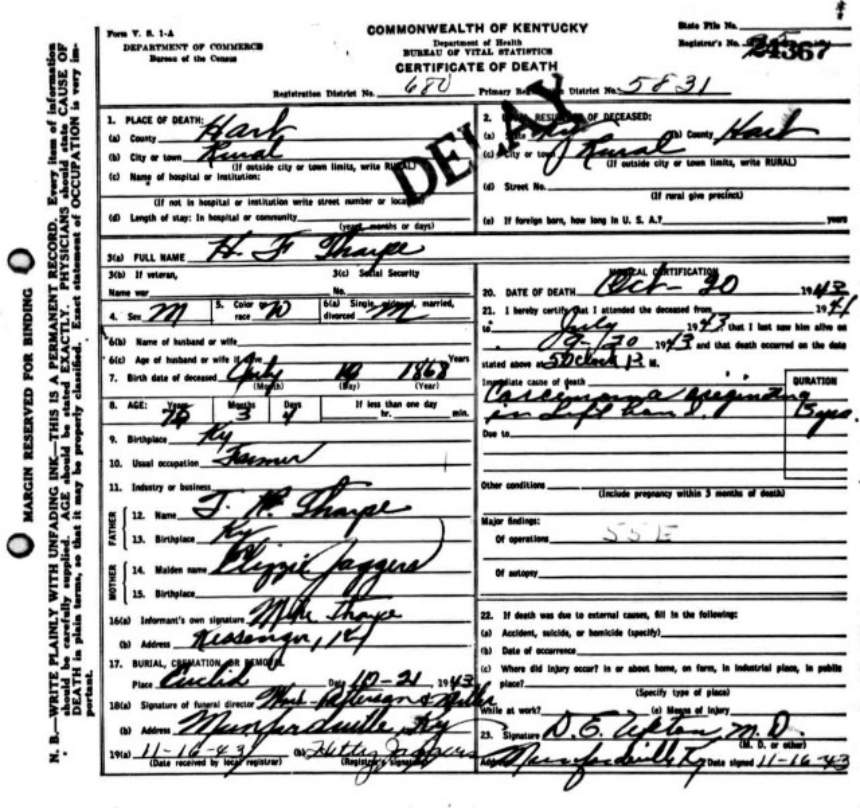 Form V. S. 1-A
DEPARTMENT OF COMMERCE
Bureau of the Census
COMMONWEALTH OF KENTUCKY
Department of Health
BUREAU OF VITAL STATISTICS
CERTIFICATE OF DEATH
State File No.
Registrar's No. 24367
Registration District No. 680 Primary Registration District No. 5831
DELAY
1. PLACE OF DEATH:
(a) County Hart
(b) City or town Rural
(If outside city or town limits, write RURAL)
(c) Name of hospital or institution:
(If not in hospital or institution write street number or location)
(d) Length of stay: In hospital or community
(years, months or days)
2. USUAL RESIDENCE OF DECEASED:
(a) State Ky (b) County Hart
(c) City or town Rural
(If outside city or town limits, write RURAL)
(d) Street No.
(If rural give precinct)
(e) If foreign born, how long in U. S. A.? years
3(a) FULL NAME H. F Tharpe
3(b) If veteran, 3(c) Social Security
Name war No.
4. Sex M 5. Color or race W 6(a) Single, widowed, married, divorced M
6(b) Name of husband or wife
6(c) Age of husband or wife if alive Years
7. Birth date of deceased July 16 1868
(Month) (Day) (Year)
8. AGE: Years Months Days If less than one day
3 4 hr. min.
9. Birthplace Ky
10. Usual occupation Farmer
11. Industry or business
FATHER
12. Name Tharpe
13. Birthplace Ky
MOTHER
14. Maiden name Jaggers
15. Birthplace
16(a) Informant's own signature Tharpe
(b) Address
17. BURIAL, CREMATION, OR REMOVAL
Place Euclid Date 10-21 1943
18(a) Signature of funeral director
(b) Address Munfordville, Ky
19(a) 11-16-43 (b) Hetty Jaggers
(Date received by local registrar) (Registrar's signature)
MEDICAL CERTIFICATION
20. DATE OF DEATH Oct- 20 1943
21. I hereby certify that I attended the deceased from 1941
to July 1943 that I last saw him alive on
9-30 1943 and that death occurred on the date
stated above at 5 O'Clock P. M.
Immediate cause of death DURATION
Carcenoma beginding
in Left hand. yrs.
Due to
Other conditions
(Include pregnancy within 3 months of death)
Major findings:
Of operations 55E
Of autopsy
22. If death was due to external causes, fill in the following:
(a) Accident, suicide, or homicide (specify)
(b) Date of occurrence
(c) Where did injury occur? in or about home, on farm, in industrial place, in public
place?
(Specify type of place)
While at work? (e) Means of injury
23. Signature D. E. Upton, M. D.
(M. D. or other)
Address Munfordville Ky Date signed 11-16-43
MARGIN RESERVED FOR BINDING
N. B.—WRITE PLAINLY WITH UNFADING INK—THIS IS A PERMANENT RECORD. Every item of information
should be carefully supplied. AGE should be stated EXACTLY. PHYSICIANS should state CAUSE OF
DEATH in plain terms, so that it may be properly classified. Exact statement of OCCUPATION is very im-
portant.